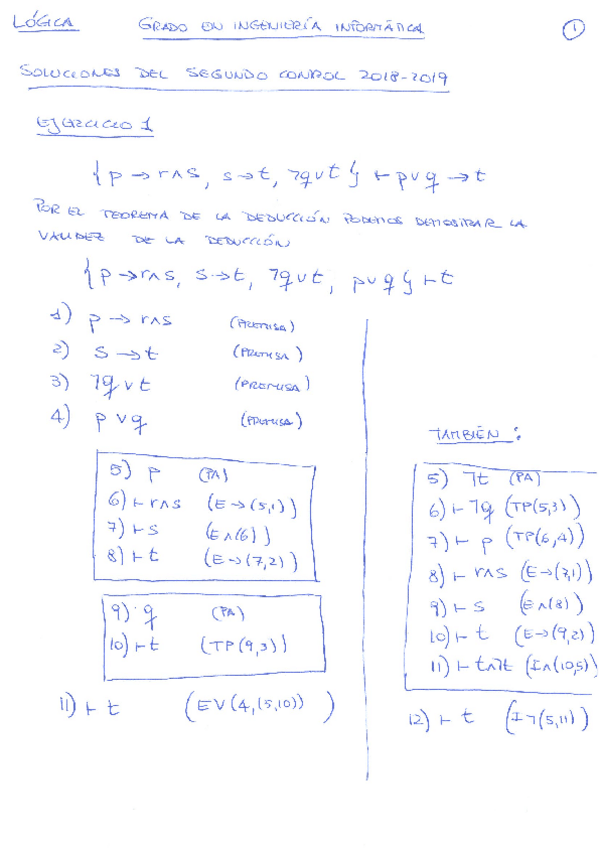 LÓGICA GRADO EN INGENIERÍA INFORMÁTICA 1
SOLUCIONES DEL SEGUNDO CONTROL 2018-2019
EJERCICIO 1
{p → r∧s, s→t, ¬q∨t} ⊢ p∨q → t
POR EL TEOREMA DE LA DEDUCCIÓN PODEMOS DEMOSTRAR LA
VALIDEZ DE LA DEDUCCIÓN
{p→r∧s, s→t, ¬q∨t, p∨q} ⊢ t
1) p → r∧s (PREMISA)
2) s → t (PREMISA)
3) ¬q ∨ t (PREMISA)
4) p ∨ q (PREMISA)
5) p (PA)
6) ⊢ r∧s (E→(5,1))
7) ⊢ s (E∧(6))
8) ⊢ t (E→(7,2))
9) q (PA)
10) ⊢ t (TP(9,3))
11) ⊢ t (E∨(4,(5,10)))
TAMBIÉN :
5) ¬t (PA)
6) ⊢ ¬q (TP(5,3))
7) ⊢ p (TP(6,4))
8) ⊢ r∧s (E→(7,1))
9) ⊢ s (E∧(8))
10) ⊢ t (E→(9,2))
11) ⊢ t∧¬t (I∧(10,5))
12) ⊢ t (I¬(5,11))